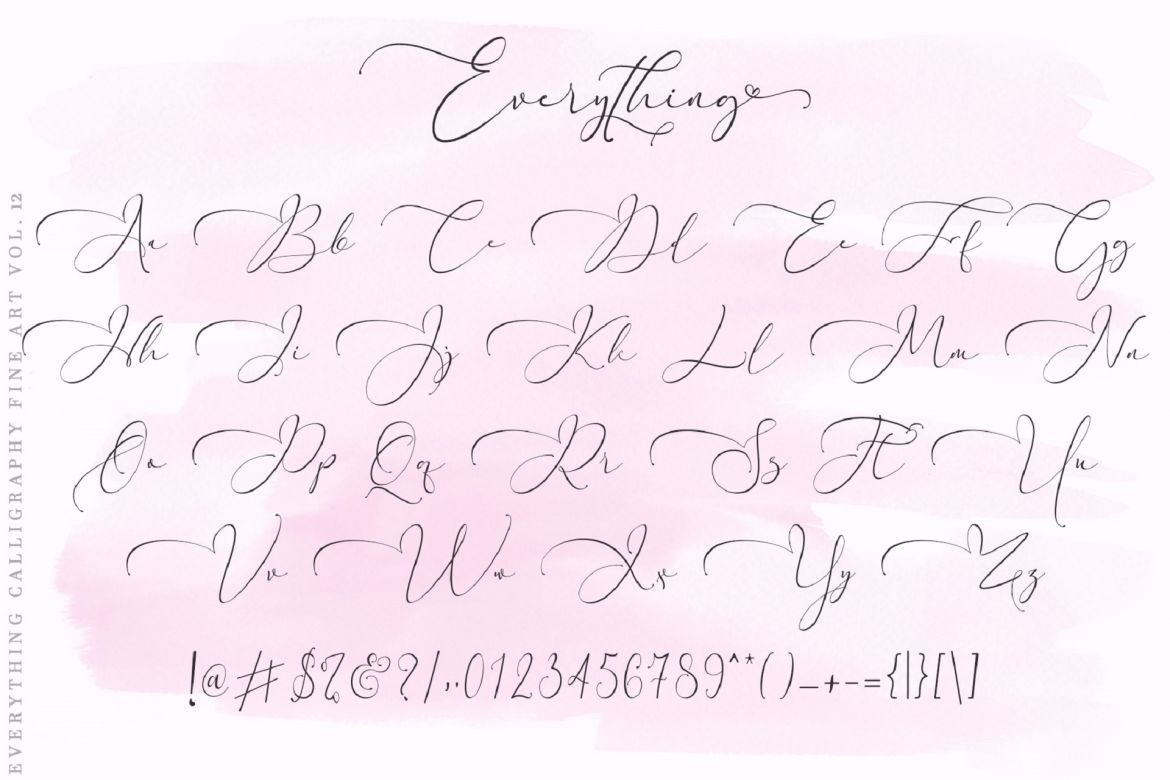 Everything
EVERYTHING CALLIGRAPHY FINE ART VOL. 12
Aa Bb Cc Dd Ee Ff Gg
Hh Ii Jj Kk Ll Mm Nn
Oo Pp Qq Rr Ss Tt Uu
Vv Ww Xx Yy Zz
!@#$%&?/,.0123456789^*()_+-={|}[\]